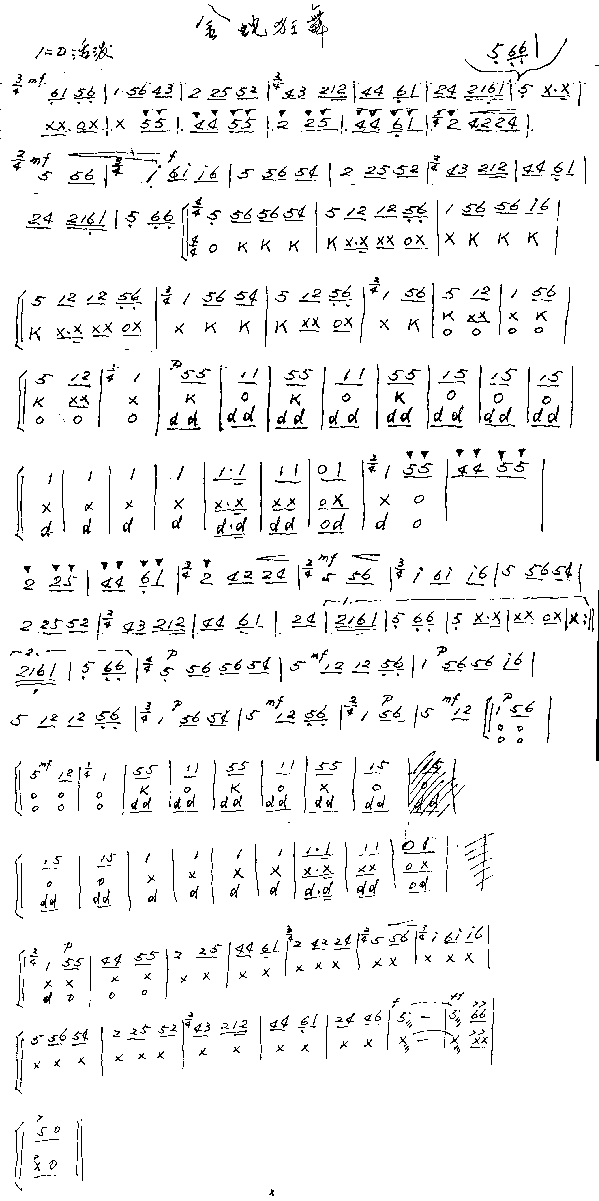 金蛇狂舞
1=D 活泼
5 66 |
3/4 mf 61 56 | 1 56 43 | 2 25 52 | 2/4 43 212 | 44 61 | 24 2161 | 5 x·x |
xx·ox | x 55 | 44 55 | 2 25 | 44 61 | 3/4 2 4224 |
2/4 mf 5 56 | 3/4 i 6i i6 | 5 56 54 | 2 25 52 | 2/4 43 212 | 44 61 |
24 2161 | 5 66 | 4/4 5 56 56 54 | 5 12 12 56 | 1 56 56 i6 |
4/4 0 K K K | K x·x xx ox | X K K K |
5 12 12 56 | 3/4 1 56 54 | 5 12 56 | 2/4 1 56 | 5 12 | 1 56 |
K x·x xx ox | x K K | K xx ox | x K | K xx | x K |
0 0 | 0 0 |
5 12 | 1/4 1 | p 55 | 11 | 55 | 11 | 55 | 15 | 15 | 15 |
K xx | x | K | 0 | K | 0 | K | 0 | 0 | 0 |
0 0 | 0 | dd | dd | dd | dd | dd | dd | dd | dd |
1 | 1 | 1 | 1 | 1·1 | 11 | 01 | 2/4 1 55 | 44 55 |
x | x | x | x | x·x | xx | ox | x 0 |
d | d | d | d | d·d | dd | 0d | d 0 |
2 25 | 44 61 | 3/4 2 42 24 | 2/4 mf 5 56 | 3/4 i 6i i6 | 5 56 54 |
2 25 52 | 2/4 43 212 | 44 61 | 24 | 1. 2161 | 5 66 | 5 x·x | xx ox | x :||
2. 2161 | 5 66 | 4/4 5 p 56 56 54 | 5 mf 12 12 56 | 1 p 56 56 i6 |
5 12 12 56 | 3/4 1 p 56 54 | 5 mf 12 56 | 2/4 1 p 56 | 5 mf 12 | 1 p 56 |
0 0
0 0
5 mf 12 | 1/4 1 | 55 | 11 | 55 | 11 | 55 | 15 |
0 0 | 0 | K | 0 | K | 0 | x | 0 |
0 0 | 0 | dd | dd | dd | dd | dd | dd |
15 | 15 | 1 | 1 | 1 | 1 | 1·1 | 11 | 01 |
0 | 0 | x | x | x | x | x·x | xx | 0x |
dd | dd | d | d | d | d | d·d | dd | 0d |
2/4 1 p 55 | 44 55 | 2 25 | 44 61 | 3/4 2 42 24 | 2/4 5 56 | 3/4 i 6i i6 |
x x | x x | x x | x x | x x x | x x | x x x |
d 0 | 0 0 |
5 56 54 | 2 25 52 | 2/4 43 212 | 44 61 | 24 46 | f 5 - | ff 5 66 |
x x x | x x x | x x | x x | x x | x - | x xx |
5 0
x 0